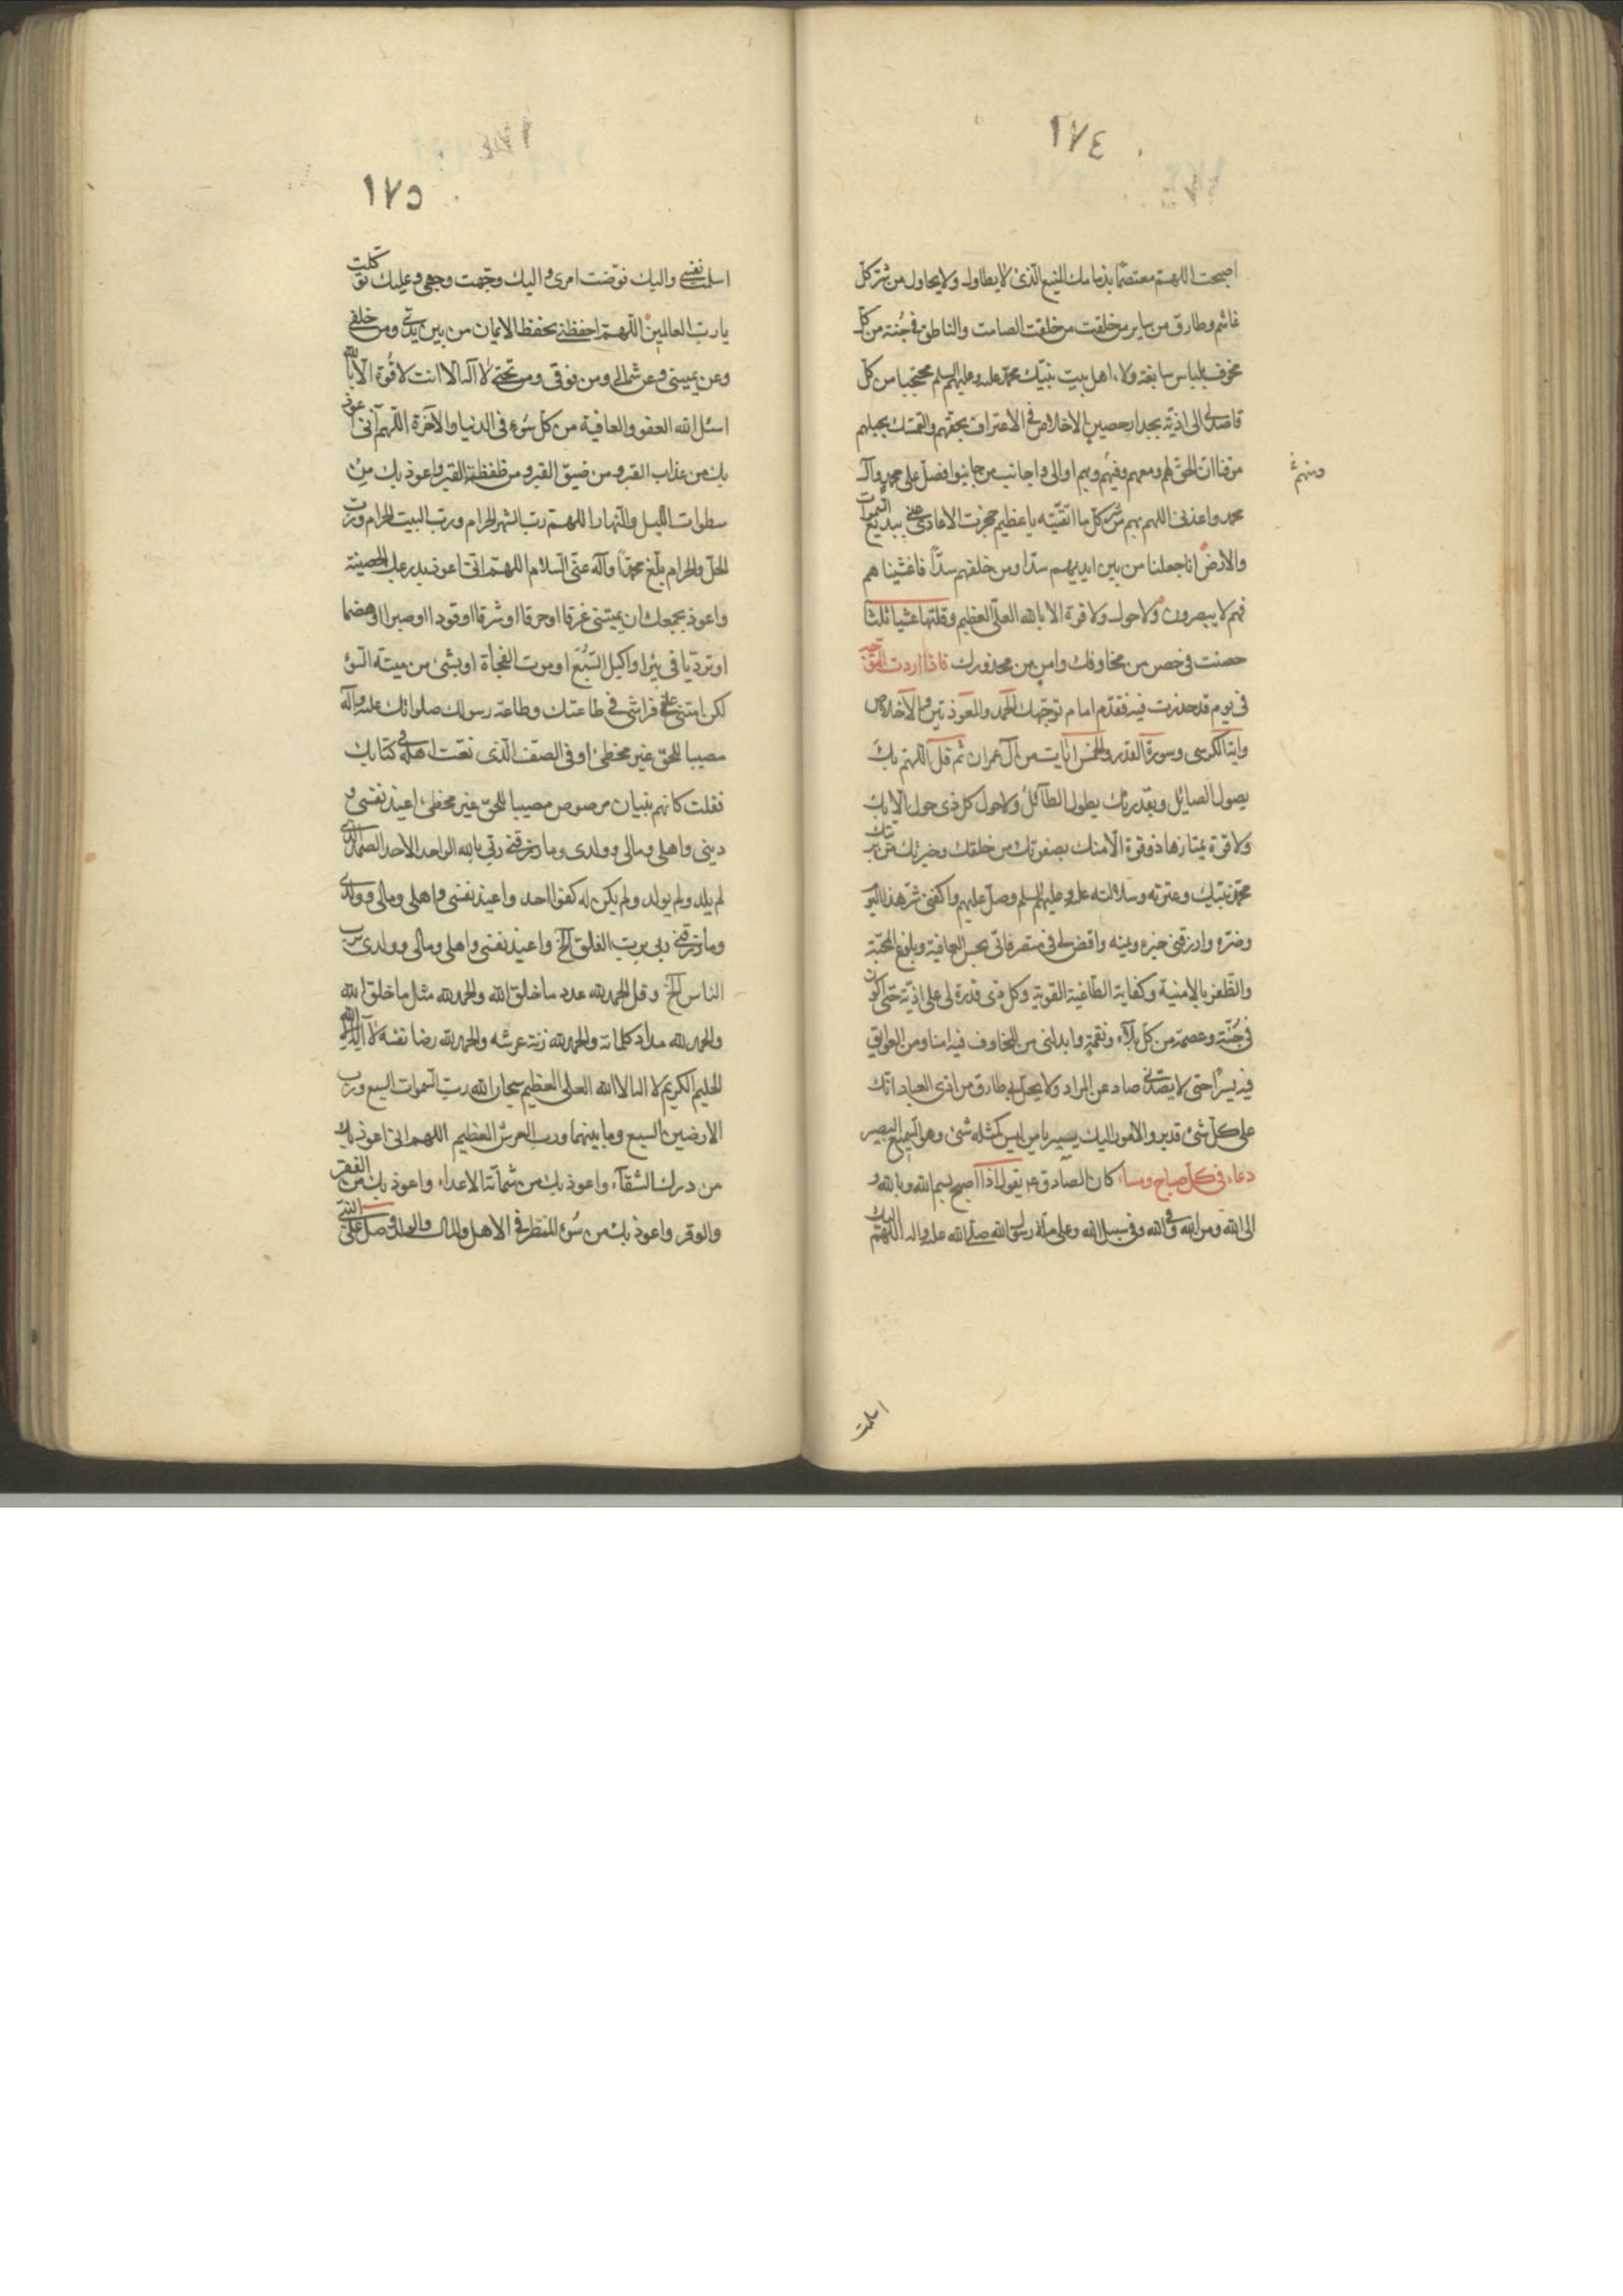 ١٧٤
اصبحت اللهم معتصما بذمامك المنيع الذى لا يطاول ولا يحاول من شر كل
غاشم وطارق من ساير من خلقت من خلقك الصامت والناطق فى جُنة من كل
مخوف بلباس سابغة ولاء اهل بيت نبيك محمد عليه وعليهم السلم محتجبا من كل
قاصد لى الى اذيّة بجدار حصين الاخلاص فى الاعتراف بحقهم والتمسك بحبلهم
موقنا ان الحق لهم ومعهم وفيهم وبهم اوالى من والوا واجانب من جانبوا فصل على محمد وآل
ومنهم
محمد واعذنى اللهم بهم من شر كل ما اتقيه يا عظيم حجزت الاعادى عنى ببديع السموات
والارض انا جعلنا من بين ايديهم سدا ومن خلفهم سدّا فاغشيناهم
فهم لا يبصرون ولا حول ولا قوة الا بالله العلى العظيم وقلتها عشيا ثلثا
حصنت فى حصن من مخاوفك وامن من محذورك فاذا اردت التوجه
فى يوم قد حذرت فيه فقدّم امام توجهك الحمد والمعوذتين والاخلاص
واية الكرسى وسورة القدر والخمس ايات من آل عمران ثم قل اللهم بك
يصول الصائل وبقدرتك يطول الطآئل ولا حول لكل ذى حول الا بك
ولا قوة يمتازها ذو قوة الّا منك بصفوتك من خلقك وخيرتك من بريتك
محمد نبيك وعترته وسلالته عليه وعليهم السلم وصل عليهم واكفنى شر هذا اليوم
وضرّه وارزقنى خيره ويمنه واقض لى فى متصرفاتى بحسن العافية وبلوغ المحبّة
والظفر بالامنية وكفاية الطّاغية القوية وكل ذى قدرة لى على اذيّة حتى اكون
فى جُنّة وعصمة من كل بلآء ونقمة وابدلنى من المخاوف فيه امنا ومن العوايق
فيه يسرًا حتى لا يصدّنى صاد عن المراد ولا يحل بى طارق من اذى العباد انك
على كل شىء قدير والامور اليك تصير يا من ليس كمثله شىء وهو السميع البصير
دعاء فى كل صباح ومساء كان الصادق ع يقول اذا اصبح بسم الله وبالله و
الى الله ومن الله وفى الله وفى سبيل الله وعلى ملة رسول الله صلى الله عليه واله اللهم اليك
اسلمت
١٧٥
اسلمت نفسى واليك فوّضت امرى واليك وجّهت وجهى وعليك توكلت
يا رب العالمين اللهم احفظنى بحفظ الايمان من بين يدىّ ومن خلفى
وعن يمينى وعن شمالى ومن فوقى ومن تحتى لا اله الا انت لا قُوّة الّا بالله
اسئل الله العفو والعافية من كل سُوء فى الدنيا والآخرة اللهم انى اعوذ
بك من عذاب القبر ومن ضيق القبر ومن ضغطة القبر واعوذ بك مِن
سطوات الليل والنهار اللهم رب الشهر الحرام ورب البيت الحرام ورب
الحل والحرام بلّغ محمدًا وآله عنّى السلام اللهم انى اعوذ بدرعك الحصينة
واعوذ بجمعك ان يميتنى غرقا او حرقا او شرقا او قودا او صبرا او هضما
او ترديا فى بئر او اكيل السّبُع او موت الفجأة او بشىء من ميتة السوء
لكن امتنى على فراشى فى طاعتك وطاعة رسولك صلواتك عليه وآله
مصيبا للحق غير مخطئ او فى الصف الذى نعّت اهله فى كتابك
فقلت كانهم بنيان مرصوص مصيبا للحق غير مخطئ اعيذ نفسى و
دينى واهلى ومالى وولدى وما رزقنى ربّى بالله الواحد الاحد الصمد الذى
لم يلد ولم يولد ولم يكن له كفوا احد واعيذ نفسى واهلى ومالى وولدى
وما رزقنى ربى برب الفلق الخ واعيذ نفسى واهلى ومالى وولدى برب
الناس الخ وقل الحمد لله عدد ما خلق الله والحمد لله مثل ما خلق الله
والحمد لله مداد كلماته والحمد لله زنة عرشه والحمد لله رضا نفسه لا اله الا الله
الحليم الكريم لا اله الا الله العلى العظيم سبحان الله رب السموات السبع ورب
الارضين السبع وما بينهما ورب العرش العظيم اللهم انى اعوذ بك
من درك الشقآء واعوذ بك من شماتة الاعداء واعوذ بك من الفقر
والوقر واعوذ بك من سُوء المنظر فى الاهل والمال والولد وصل على النبى